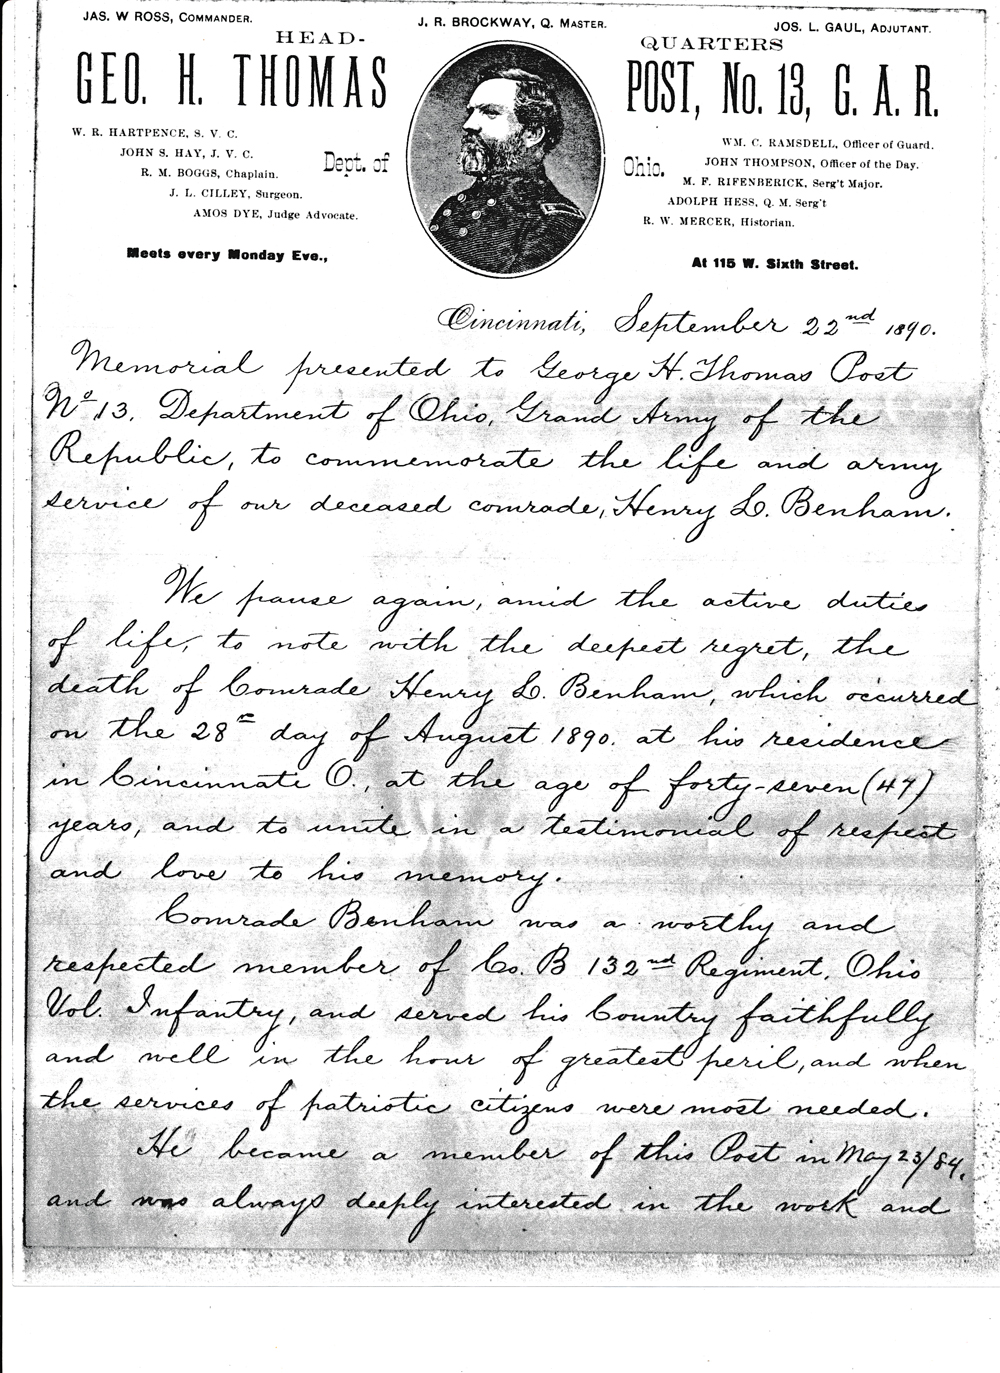 JAS. W ROSS, COMMANDER.
J. R. BROCKWAY, Q. MASTER.
JOS. L. GAUL, ADJUTANT.
HEAD-QUARTERS
GEO. H. THOMAS POST, No. 13, G. A. R.
Dept. of Ohio.
W. R. HARTPENCE, S. V. C.
JOHN S. HAY, J. V. C.
R. M. BOGGS, Chaplain.
J. L. CILLEY, Surgeon.
AMOS DYE, Judge Advocate.
WM. C. RAMSDELL, Officer of Guard.
JOHN THOMPSON, Officer of the Day.
M. F. RIFENBERICK, Serg't Major.
ADOLPH HESS, Q. M. Serg't
R. W. MERCER, Historian.
Meets every Monday Eve.,
At 115 W. Sixth Street.
Cincinnati, September 22nd 1890.
Memorial presented to George H. Thomas Post
No 13, Department of Ohio, Grand Army of the
Republic, to commemorate the life and army
service of our deceased comrade, Henry L. Benham.
We pause again, amid the active duties
of life, to note with the deepest regret, the
death of Comrade Henry L. Benham, which occurred
on the 28th day of August 1890. at his residence
in Cincinnati O., at the age of forty-seven (47)
years, and to unite in a testimonial of respect
and love to his memory.
Comrade Benham was a worthy and
respected member of Co. B 132nd Regiment, Ohio
Vol. Infantry, and served his Country faithfully
and well in the hour of greatest peril, and when
the services of patriotic citizens were most needed.
He became a member of this Post in May 23/84,
and was always deeply interested in the work and